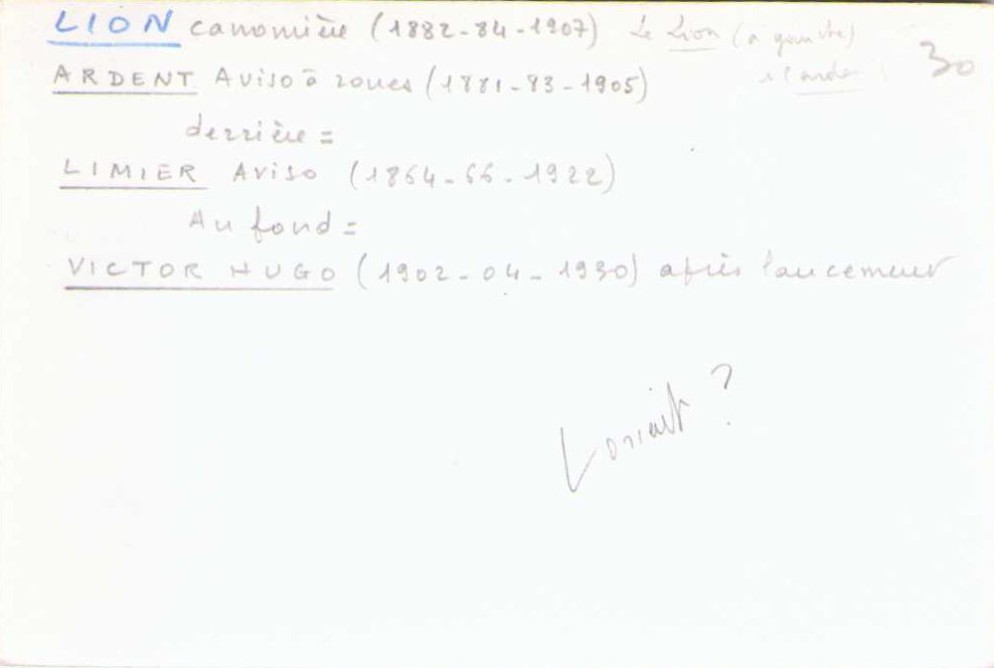 LION canonnière (1882-84-1907) Le Lion (a gauche)
30
ARDENT Aviso à roues (1881-83-1905)
derrière =
LIMIER Aviso (1864-66-1922)
Au fond =
VICTOR HUGO (1902-04-1930) après lancement
Lorient ?